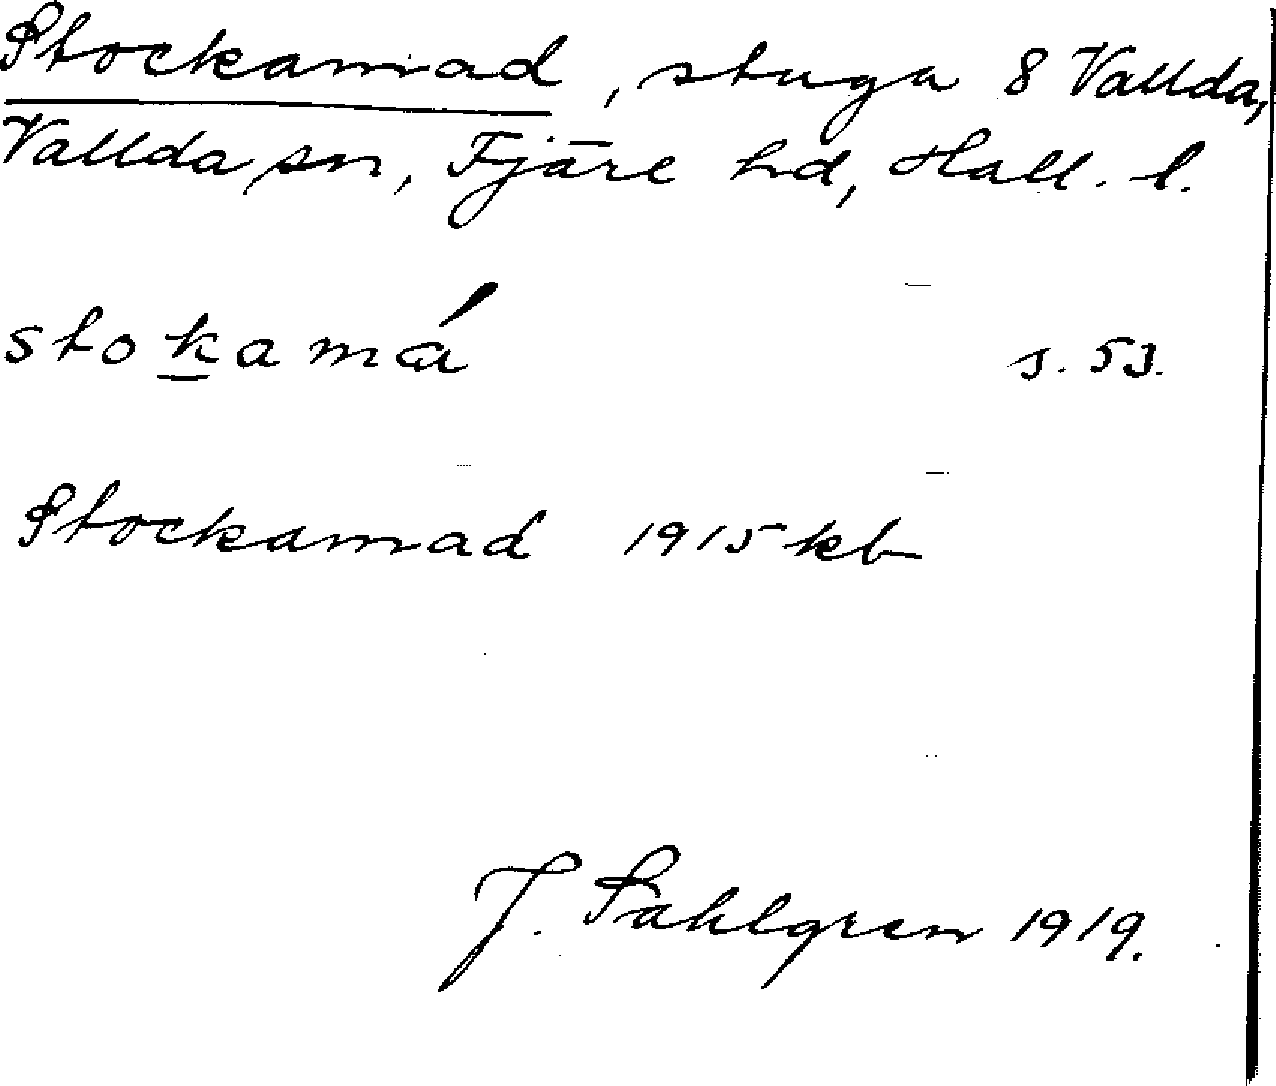 Stockamad, stuga 8 Vallda,
Vallda sn, Fjäre hd, Hall. l.
stokamá s. 53.
Stockamad 1915 kb
J. Sahlgren 1919.